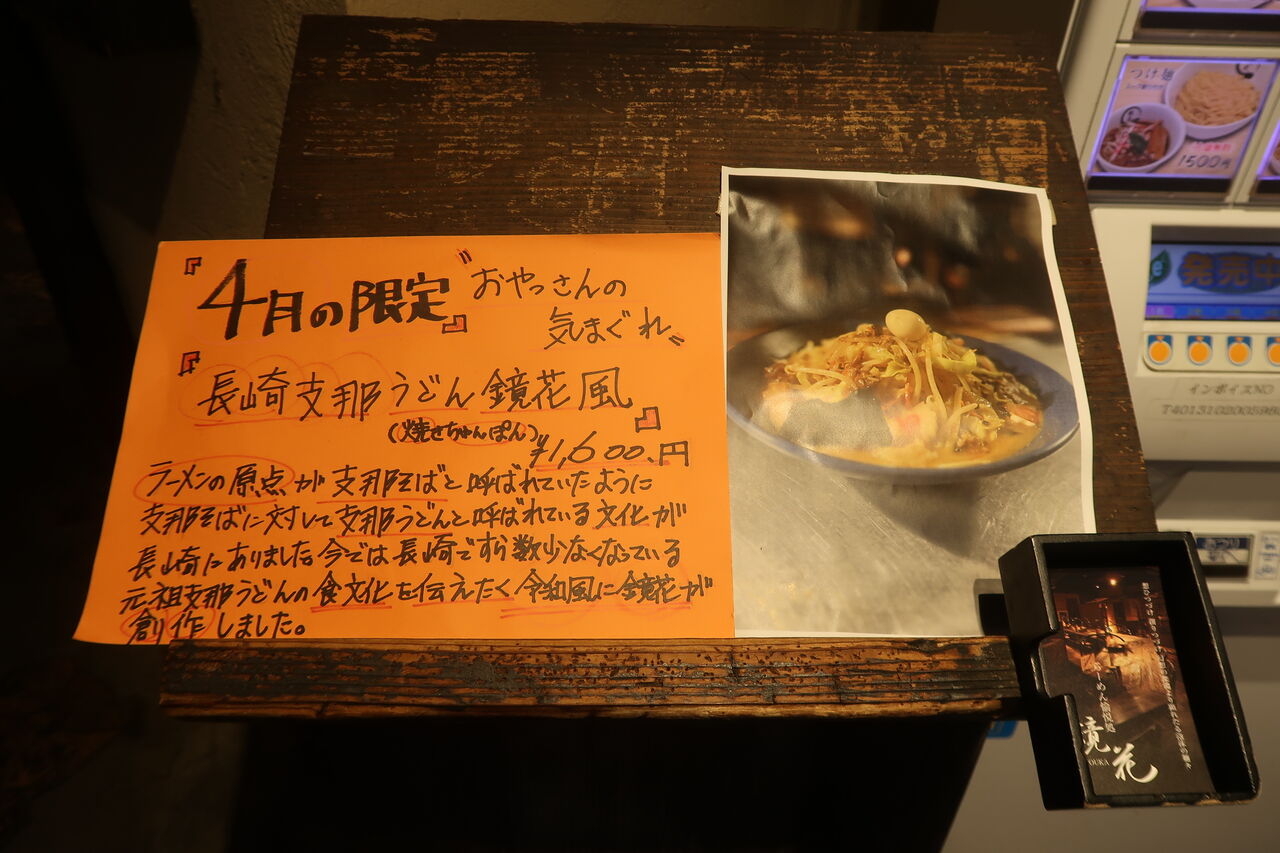 『4月の限定』
〝おやっさんの
気まぐれ〟
『長崎支那うどん鏡花風』
(焼きちゃんぽん)
¥1,600.円
ラーメンの原点が支那そばと呼ばれていたように
支那そばに対して支那うどんと呼ばれている文化が
長崎にありました今では長崎ですら数少なくなっている
元祖支那うどんの食文化を伝えたく令和風に鏡花が
創作しました。
つけ麺
1500円
発売中
インボイスNO
鏡花